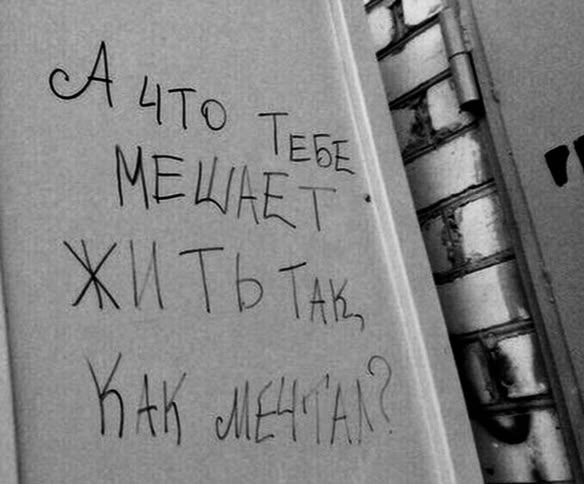 А ЧТО ТЕБЕ
МЕШАЕТ
ЖИТЬ ТАК,
КАК МЕЧТАЛ?